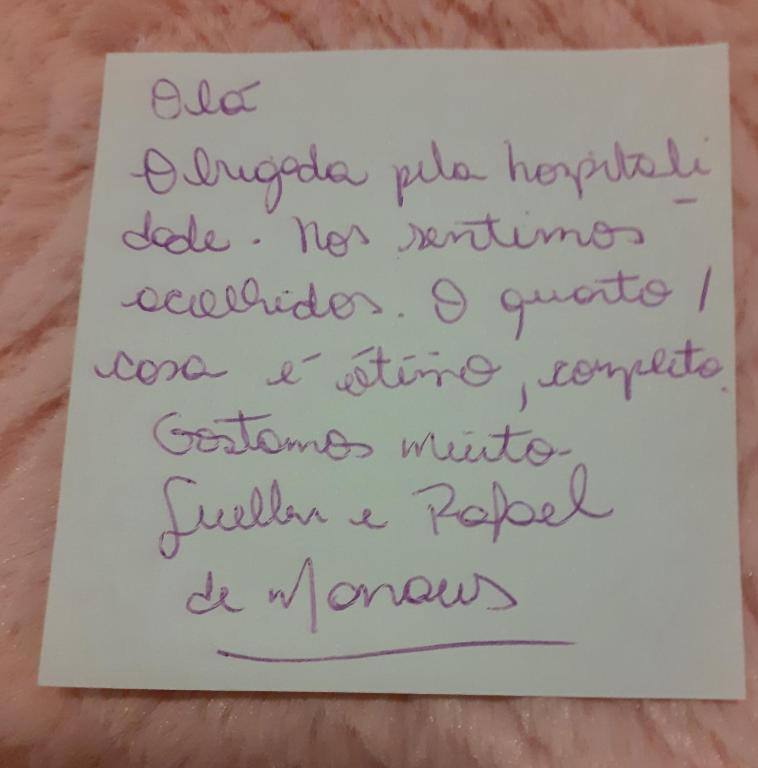 Olá
Obrigada pela hospitali
dade. Nos sentimos
acolhidos. O quarto /
casa é ótimo, completo.
Gostamos muito.
e Rafael
de Manaus